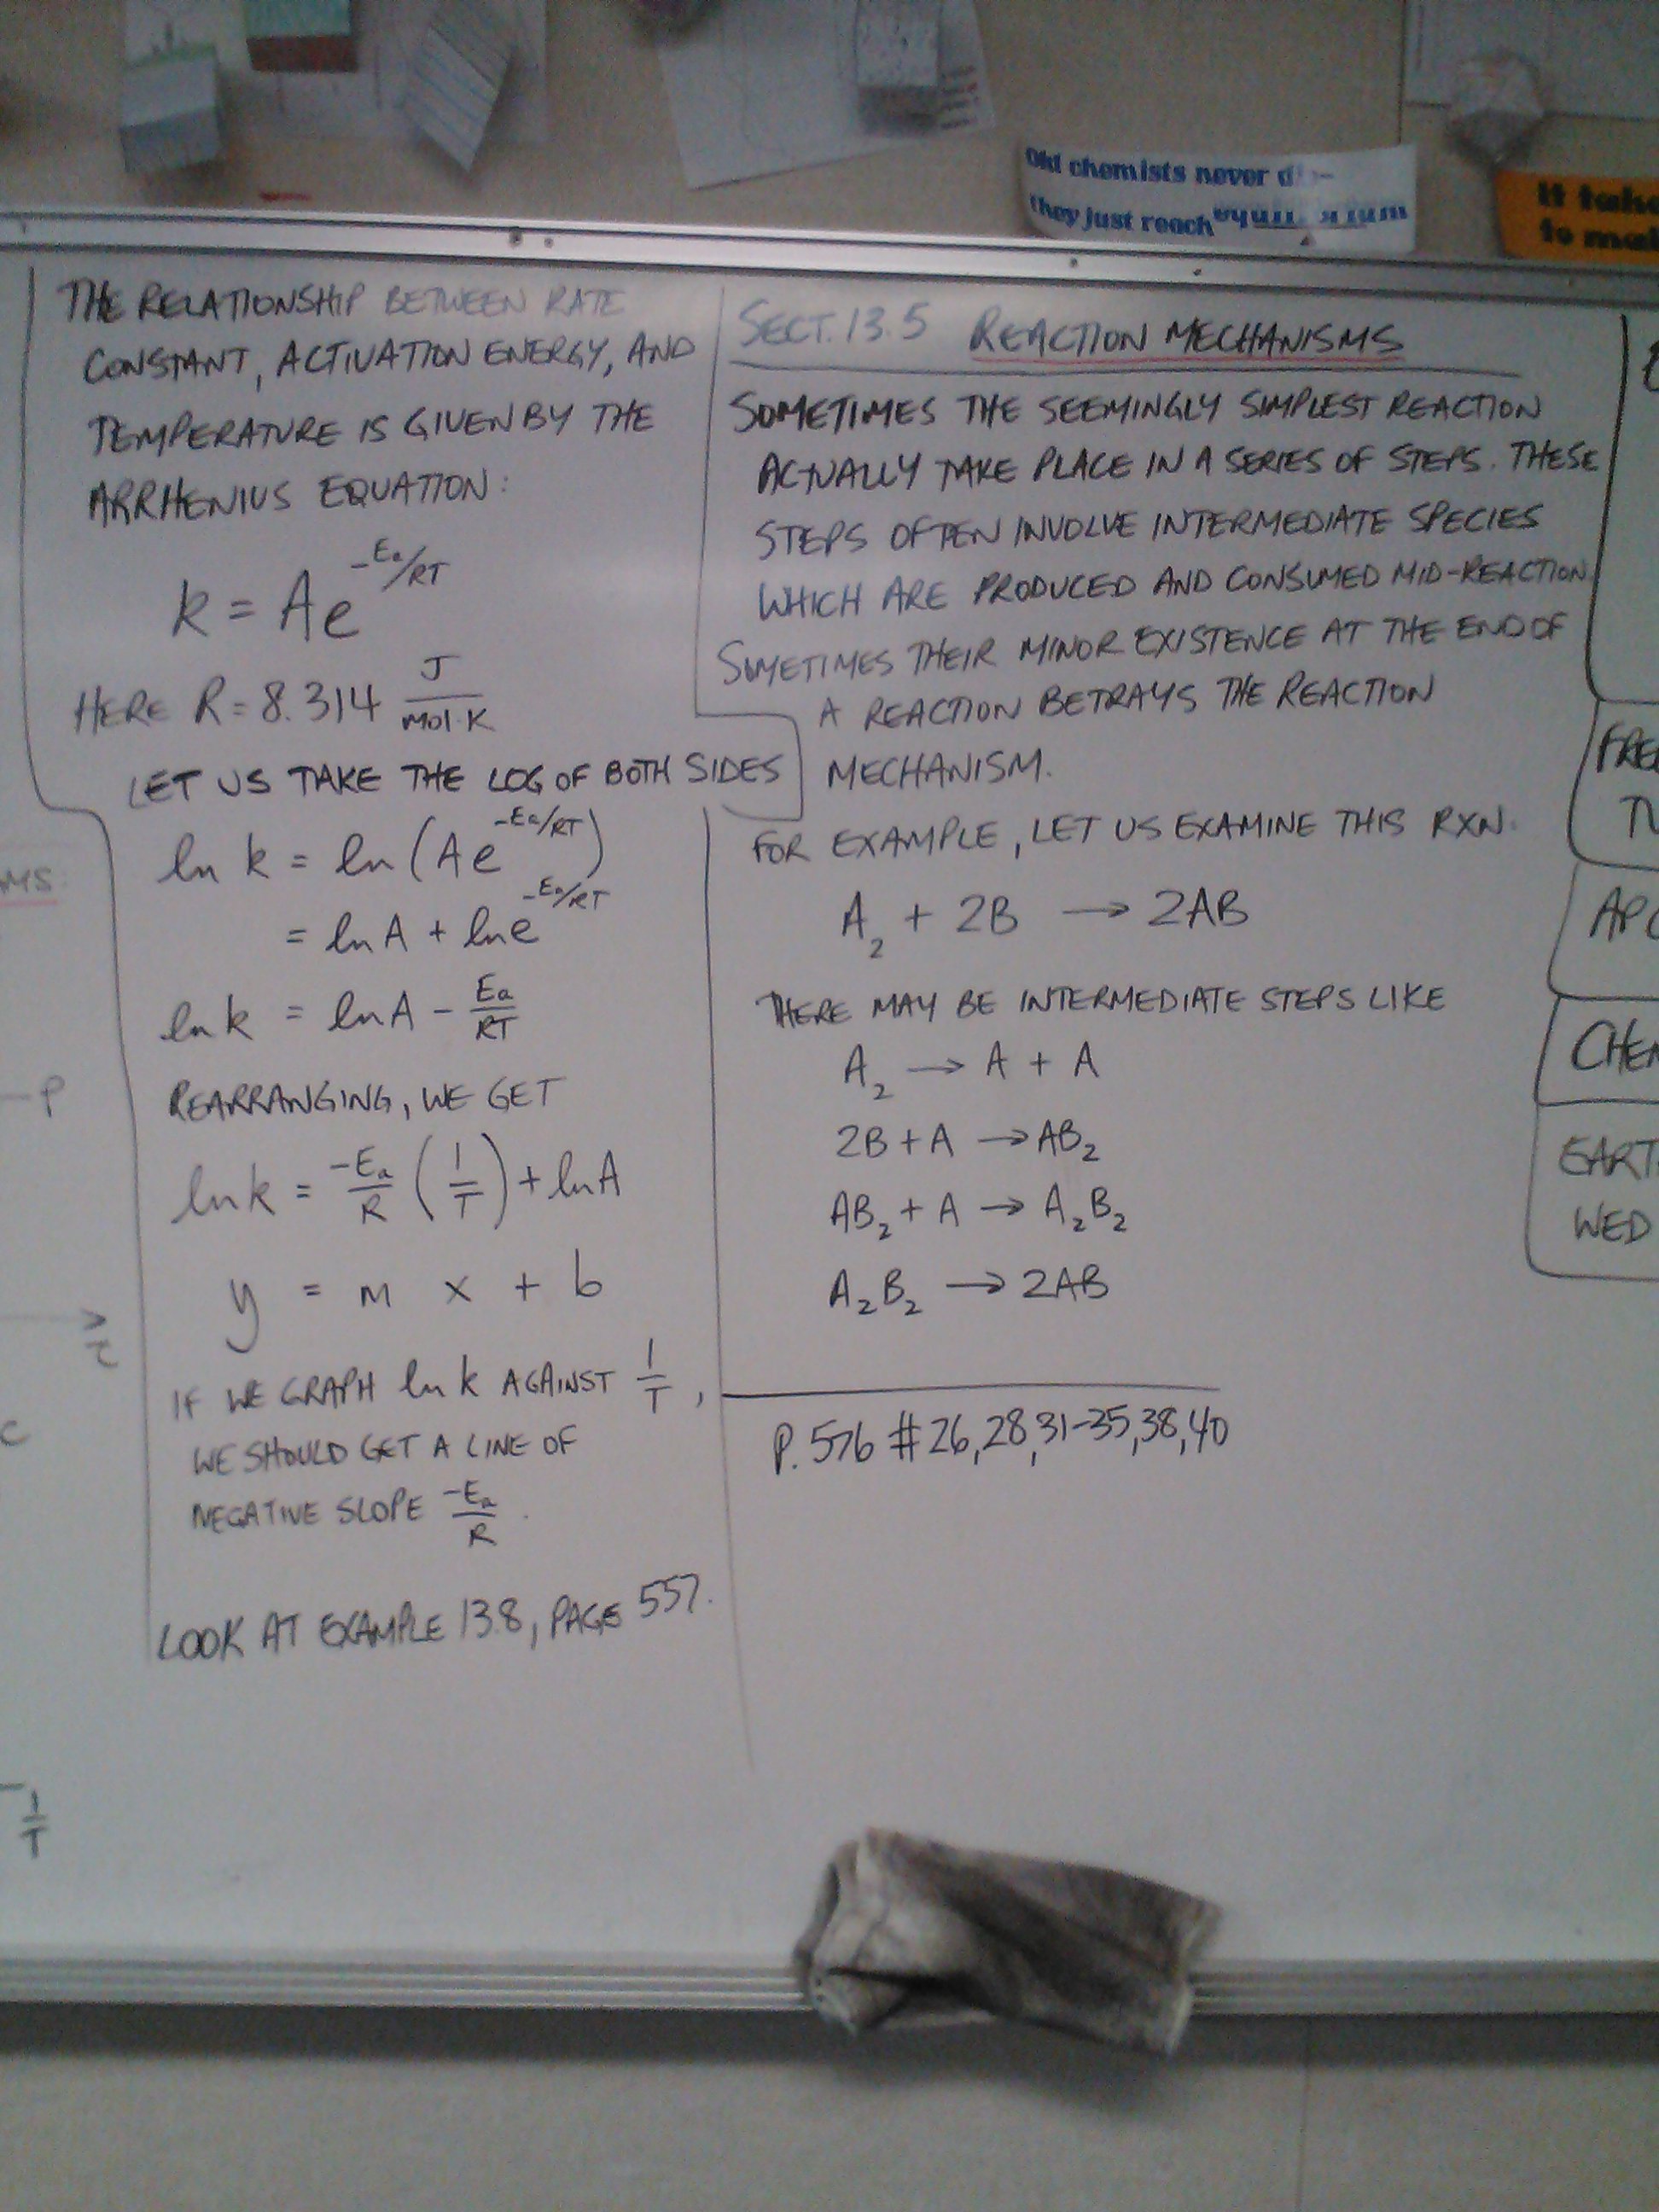 Old chemists never
they just reach
It take
to mak
THE RELATIONSHIP BETWEEN RATE
CONSTANT, ACTIVATION ENERGY, AND
TEMPERATURE IS GIVEN BY THE
ARRHENIUS EQUATION:
k = Ae^(-Ea/RT)
HERE R = 8.314 J/mol·K
LET US TAKE THE LOG OF BOTH SIDES
ln k = ln (Ae^(-Ea/RT))
= ln A + ln e^(-Ea/RT)
ln k = ln A - Ea/RT
REARRANGING, WE GET
ln k = -Ea/R (1/T) + ln A
y = m x + b
IF WE GRAPH ln k AGAINST 1/T,
WE SHOULD GET A LINE OF
NEGATIVE SLOPE -Ea/R.
LOOK AT EXAMPLE 13.8, PAGE 557.
SECT. 13.5 REACTION MECHANISMS
SOMETIMES THE SEEMINGLY SIMPLEST REACTION
ACTUALLY TAKE PLACE IN A SERIES OF STEPS. THESE
STEPS OFTEN INVOLVE INTERMEDIATE SPECIES
WHICH ARE PRODUCED AND CONSUMED MID-REACTION.
SOMETIMES THEIR MINOR EXISTENCE AT THE END OF
A REACTION BETRAYS THE REACTION
MECHANISM.
FOR EXAMPLE, LET US EXAMINE THIS RXN.
A₂ + 2B → 2AB
THERE MAY BE INTERMEDIATE STEPS LIKE
A₂ → A + A
2B + A → AB₂
AB₂ + A → A₂B₂
A₂B₂ → 2AB
P. 576 # 26, 28, 31-35, 38, 40
MS
P
C
1/T
FRE
TU
AP C
CHEM
EART
WED